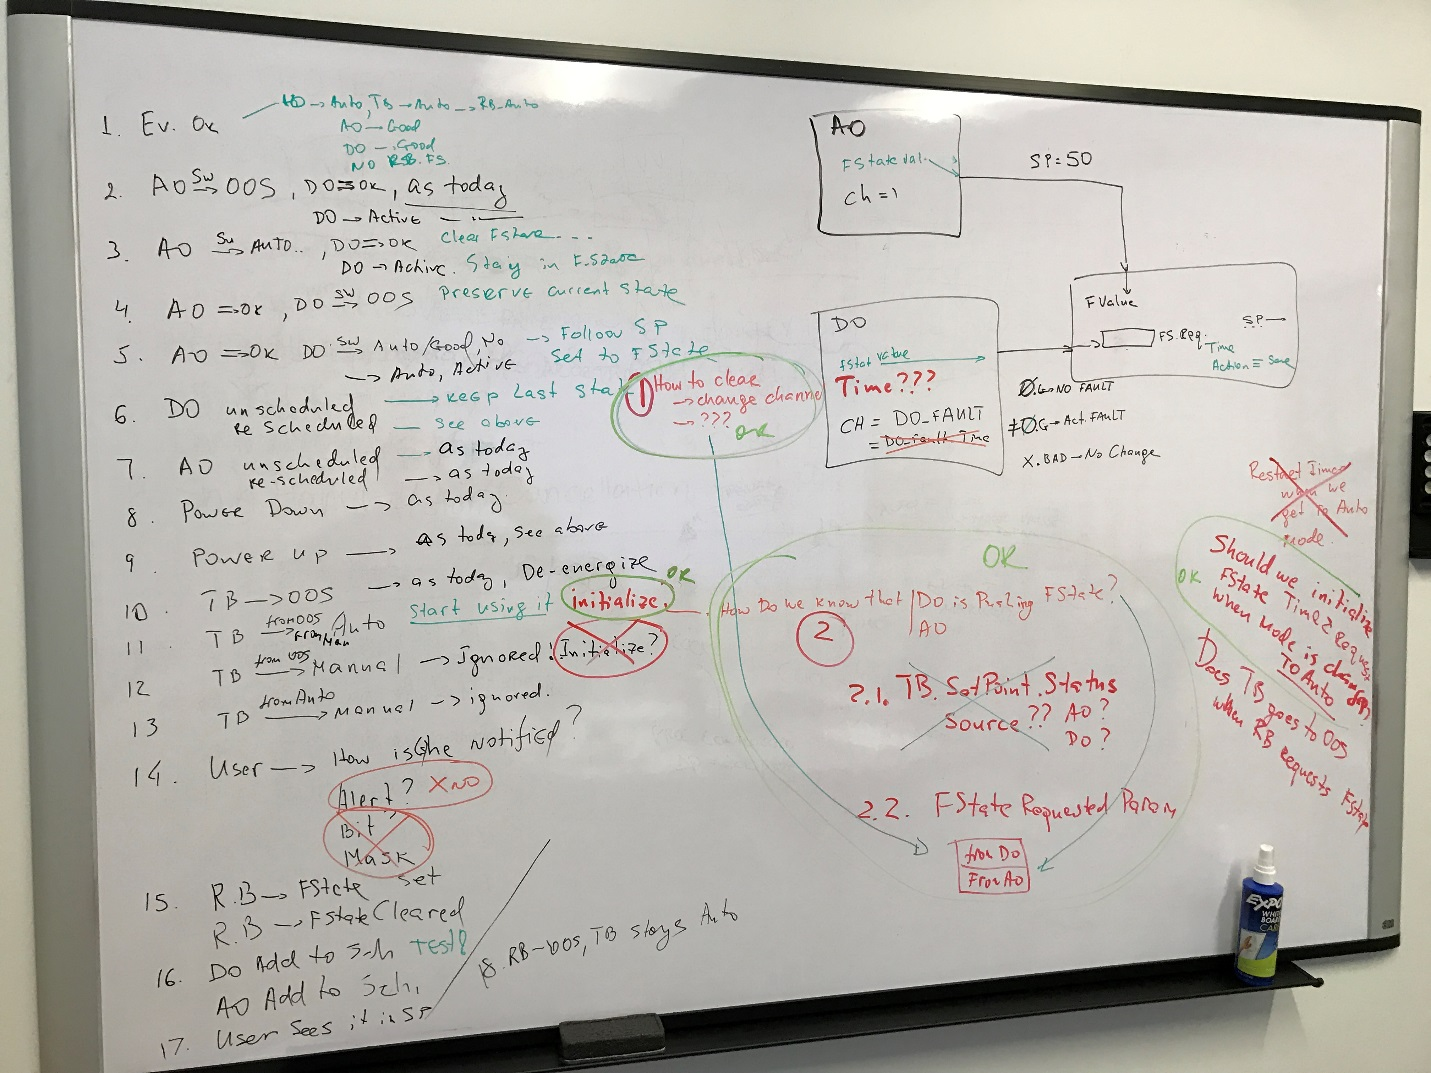 1. Ev. OK
→ Auto, TB → Auto → RB-Auto
AO — Good
DO — Good
NO RSB.FS.
2. AO SW→ OOS, DO => OK, as today
DO → Active — " —
3. AO SW→ AUTO.., DO => OK Clear FState - - -
DO → Active. Stay in F.State
4. AO => OK, DO SW→ OOS Preserve current state
5. AO => OK DO SW→ Auto/Good, No → Follow SP
→ Auto, Active Set to FState
6. DO unscheduled → keep Last sta
Re Scheduled — see above
7. AO unscheduled → as today
re-scheduled → as today
8. Power Down → as today.
9. Power up → As today, see above
10. TB → OOS → as today, De-energize
11. TB from OOS From Man → Auto Start using it initialize. OK
12. TB from OOS → Manual → Ignored. Initialize?
13. TB from Auto → Manual → ignored.
14. User → How is (s)he notified?
Alert? X NO
Bit?
Mask
15. R.B → FState set
R.B → FState Cleared
16. Do Add to Sch TEST?
AO Add to Sch,
17. User sees it in SP
18. RB→OOS, TB stays Auto
1 How to clear
→ change channe
→ ???
OK
AO
FState val.
Ch = 1
SP = 50
DO
fstat value
Time???
CH = DO_FAULT
= DO_Fault_Time
FValue
FS.Req.
SP →
Time
Action = Save
Ø.G → NO FAULT
≠Ø.G → Act. FAULT
X.BAD → No Change
OK
How Do we know that DO is Pushing FState?
AO
2
2.1. TB. SetPoint.Status
Source?? AO?
DO?
2.2. FState Requested Param
from DO
From AO
Restart Timer
when we
get to Auto
mode
OK
Should we initialize
FState Time & Request
when Mode is changing
TO Auto
Does TB goes to OOS
when RB Requests FState
EXPO
WHITE
BOARD
CARE